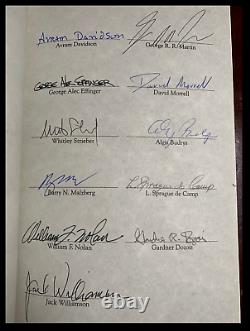 Avram Davidson
Avram Davidson George R. R. Martin
GEORGE ALEC EFFINGER David Morrell
George Alec Effinger David Morrell
Whitley Strieber Algis Budrys
Barry N. Malzberg L. Sprague de Camp
L. Sprague de Camp
William F. Nolan
William F. Nolan Gardner Dozois
Jack Williamson
Jack Williamson